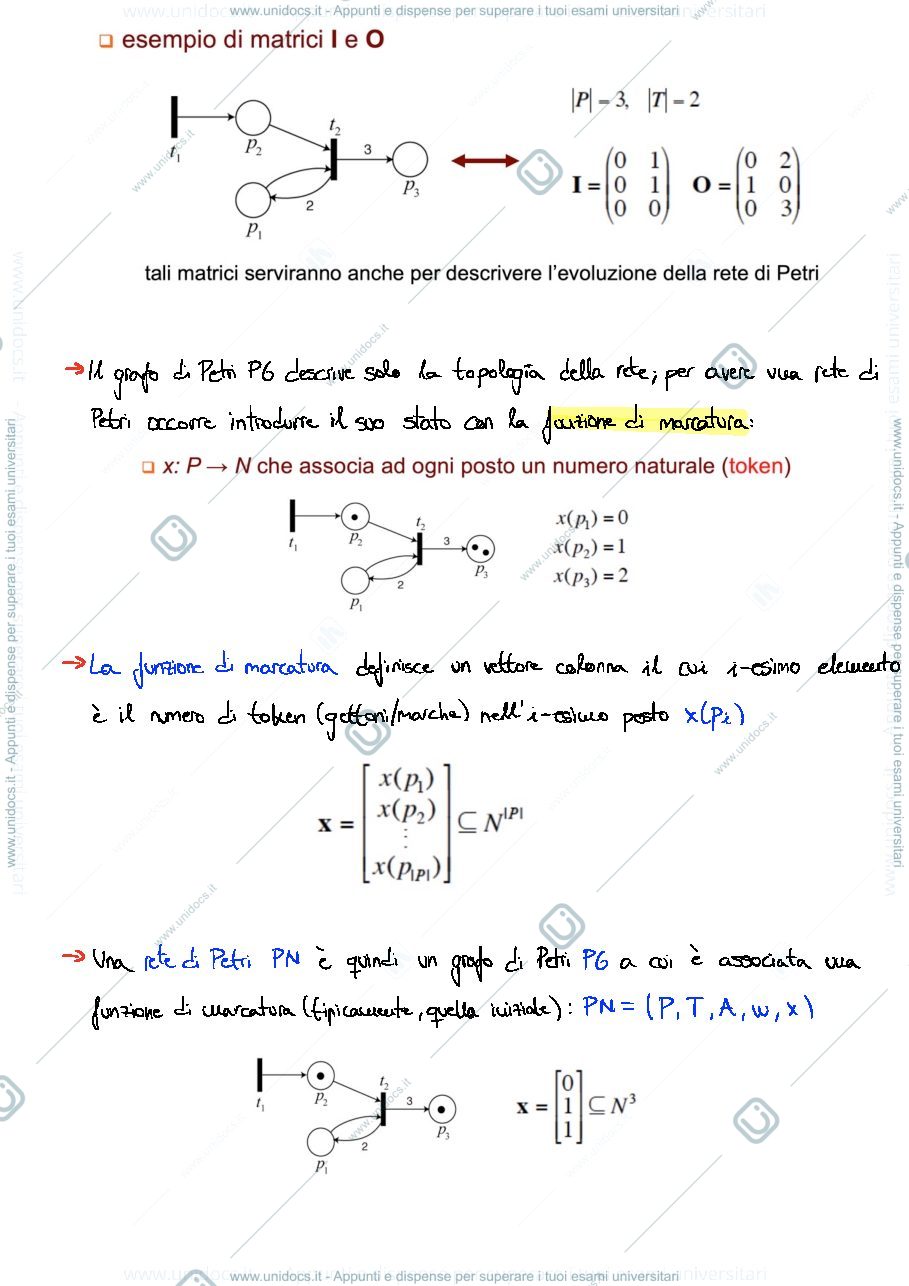 www.unidocs.it - Appunti e dispense per superare i tuoi esami universitari
❑ esempio di matrici I e O
|P| = 3, |T| = 2
t₁ p₂ t₂ 3 p₃ p₁ 2
I = (0 1; 0 1; 0 0) O = (0 2; 1 0; 0 3)
tali matrici serviranno anche per descrivere l'evoluzione della rete di Petri
→ Il grafo di Petri PG descrive solo la topologia della rete; per avere una rete di
Petri occorre introdurre il suo stato con la funzione di marcatura:
❑ x: P → N che associa ad ogni posto un numero naturale (token)
t₁ p₂ t₂ 3 p₃ p₁ 2
x(p₁) = 0
x(p₂) = 1
x(p₃) = 2
→ La funzione di marcatura definisce un vettore colonna il cui i-esimo elemento
è il numero di token (gettoni/marche) nell'i-esimo posto x(pᵢ)
x = [x(p₁) x(p₂) ⋮ x(p|P|)] ⊆ N^|P|
→ Una rete di Petri PN è quindi un grafo di Petri PG a cui è associata una
funzione di marcatura (tipicamente, quella iniziale): PN = (P, T, A, w, x)
t₁ p₂ t₂ 3 p₃ p₁ 2
x = [0 1 1] ⊆ N³
www.unidocs.it - Appunti e dispense per superare i tuoi esami universitari
www.unidocs.it - Appunti e dispense per superare i tuoi esami universitari
www.unidocs.it - Appunti e dispense per superare i tuoi esami universitari